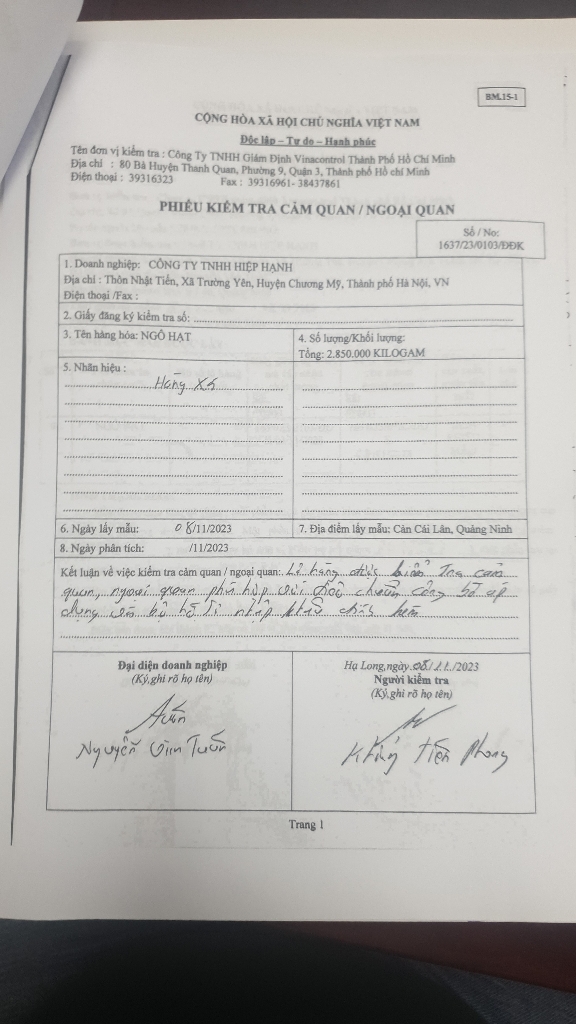 BM.15-1
CỘNG HÒA XÃ HỘI CHỦ NGHĨA VIỆT NAM
Độc lập – Tự do – Hạnh phúc
Tên đơn vị kiểm tra : Công Ty TNHH Giám Định Vinacontrol Thành Phố Hồ Chí Minh
Địa chỉ : 80 Bà Huyện Thanh Quan, Phường 9, Quận 3, Thành phố Hồ chí Minh
Điện thoại : 39316323 Fax : 39316961- 38437861
PHIẾU KIỂM TRA CẢM QUAN / NGOẠI QUAN
Số / No:
1637/23/0103/ĐĐK
1. Doanh nghiệp: CÔNG TY TNHH HIỆP HẠNH
Địa chỉ : Thôn Nhật Tiến, Xã Trường Yên, Huyện Chương Mỹ, Thành phố Hà Nội, VN
Điện thoại /Fax :
2. Giấy đăng ký kiểm tra số:
3. Tên hàng hóa: NGÔ HẠT
4. Số lượng/Khối lượng:
Tổng: 2.850.000 KILOGAM
5. Nhãn hiệu :
Hàng xá
6. Ngày lấy mẫu: 08/11/2023
7. Địa điểm lấy mẫu: Cản Cái Lân, Quảng Ninh
8. Ngày phân tích: /11/2023
Kết luận về việc kiểm tra cảm quan / ngoại quan: Lô hàng được kiểm tra cảm
quan, ngoại quan phù hợp với tiêu chuẩn công bố áp
dụng và hồ sơ nhập khẩu
Đại diện doanh nghiệp
(Ký,ghi rõ họ tên)
Tuấn
Nguyễn Văn Tuấn
Hạ Long,ngày 08/11/2023
Người kiểm tra
(Ký,ghi rõ họ tên)
Tiến Phong
Trang 1